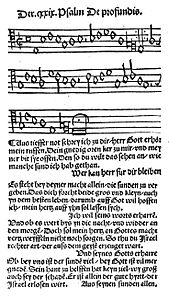 Der .cxix. Psalm De profundis.
Auß tieffer not schrey ich zu dir Herr Gott erhör
mein ruffen. Dein gnedig oren ker zu mir und mey
ner bit sye offen. Den so du wilt das sehen an wie
manche sund ich hab gethan.
Wer kan herr fur dir bleiben
Es steht bey deyner macht allein die sunden zu ver
geben. Das dich forcht beide groß und kleyn auch
yn dem besten leben darumb auff Got wil hoffen
ich mein hertz auff yhn sol lassen sich,
Ich wil seins worts erharren.
Und ob es wert byß in die nacht und wider an
den morgen Doch sol mein hertz an Gottes macht
verzweyffeln nicht noch sorgen. So thu Israel
rechter art der auß dem geyst erzeuget wart
Und seynes Gotts erharre
Ob bey uns ist der sund viel bey Got ist vil mer
gnade. Sein handt zu helffen hat keyn ziel wie groß
auch sey der schade. Er ist allein der gute hyrt der
Israel erlösen wirt.
Auß seynen sunden allen,